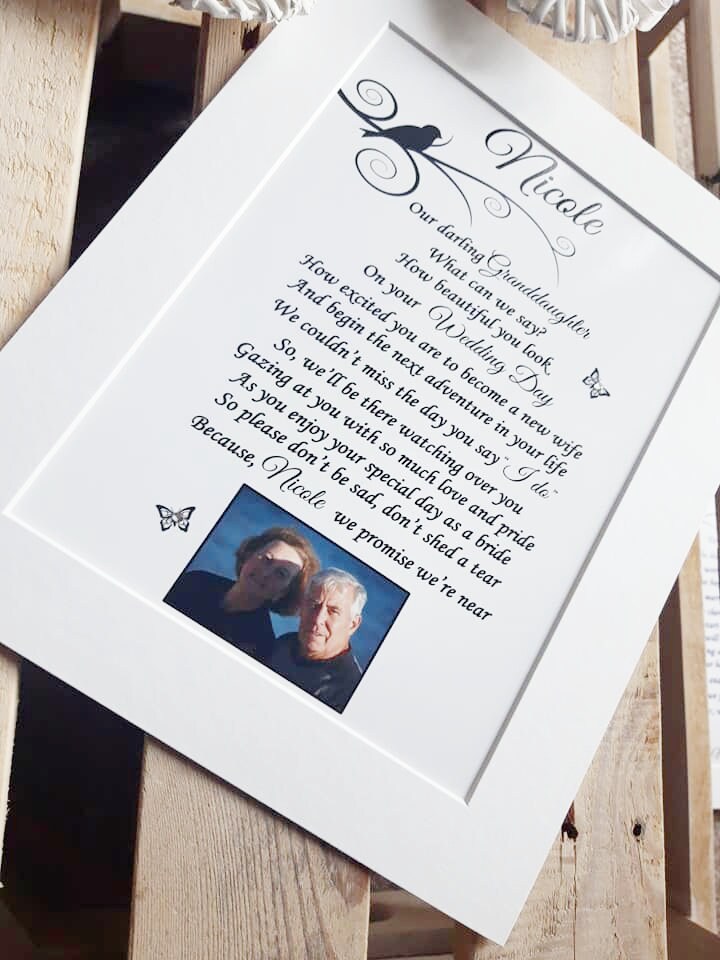 Nicole
Our darling Granddaughter
What can we say?
How beautiful you look,
On your Wedding Day
How excited you are to become a new wife
And begin the next adventure in your life
We couldn't miss the day you say "I do"
So, we'll be there watching over you
Gazing at you with so much love and pride
As you enjoy your special day as a bride
So please don't be sad, don't shed a tear
Because, Nicole we promise we're near